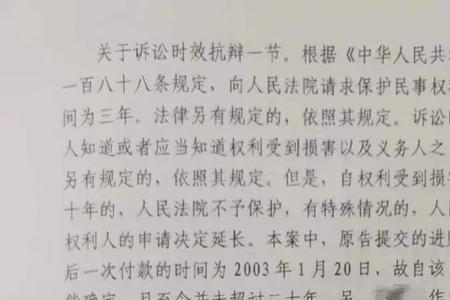 关于诉讼时效抗辩一节。根据《中华人民共
一百八十八条规定，向人民法院请求保护民事权
间为三年。法律另有规定的，依照其规定。诉讼
人知道或者应当知道权利受到损害以及义务人之
另有规定的，依照其规定。但是，自权利受到损
十年的，人民法院不予保护，有特殊情况的，人
权利人的申请决定延长。本案中，原告提交的进
后一次付款的时间为 2003 年 1 月 20 日，故自该
确定，且至今并未超过二十年，另